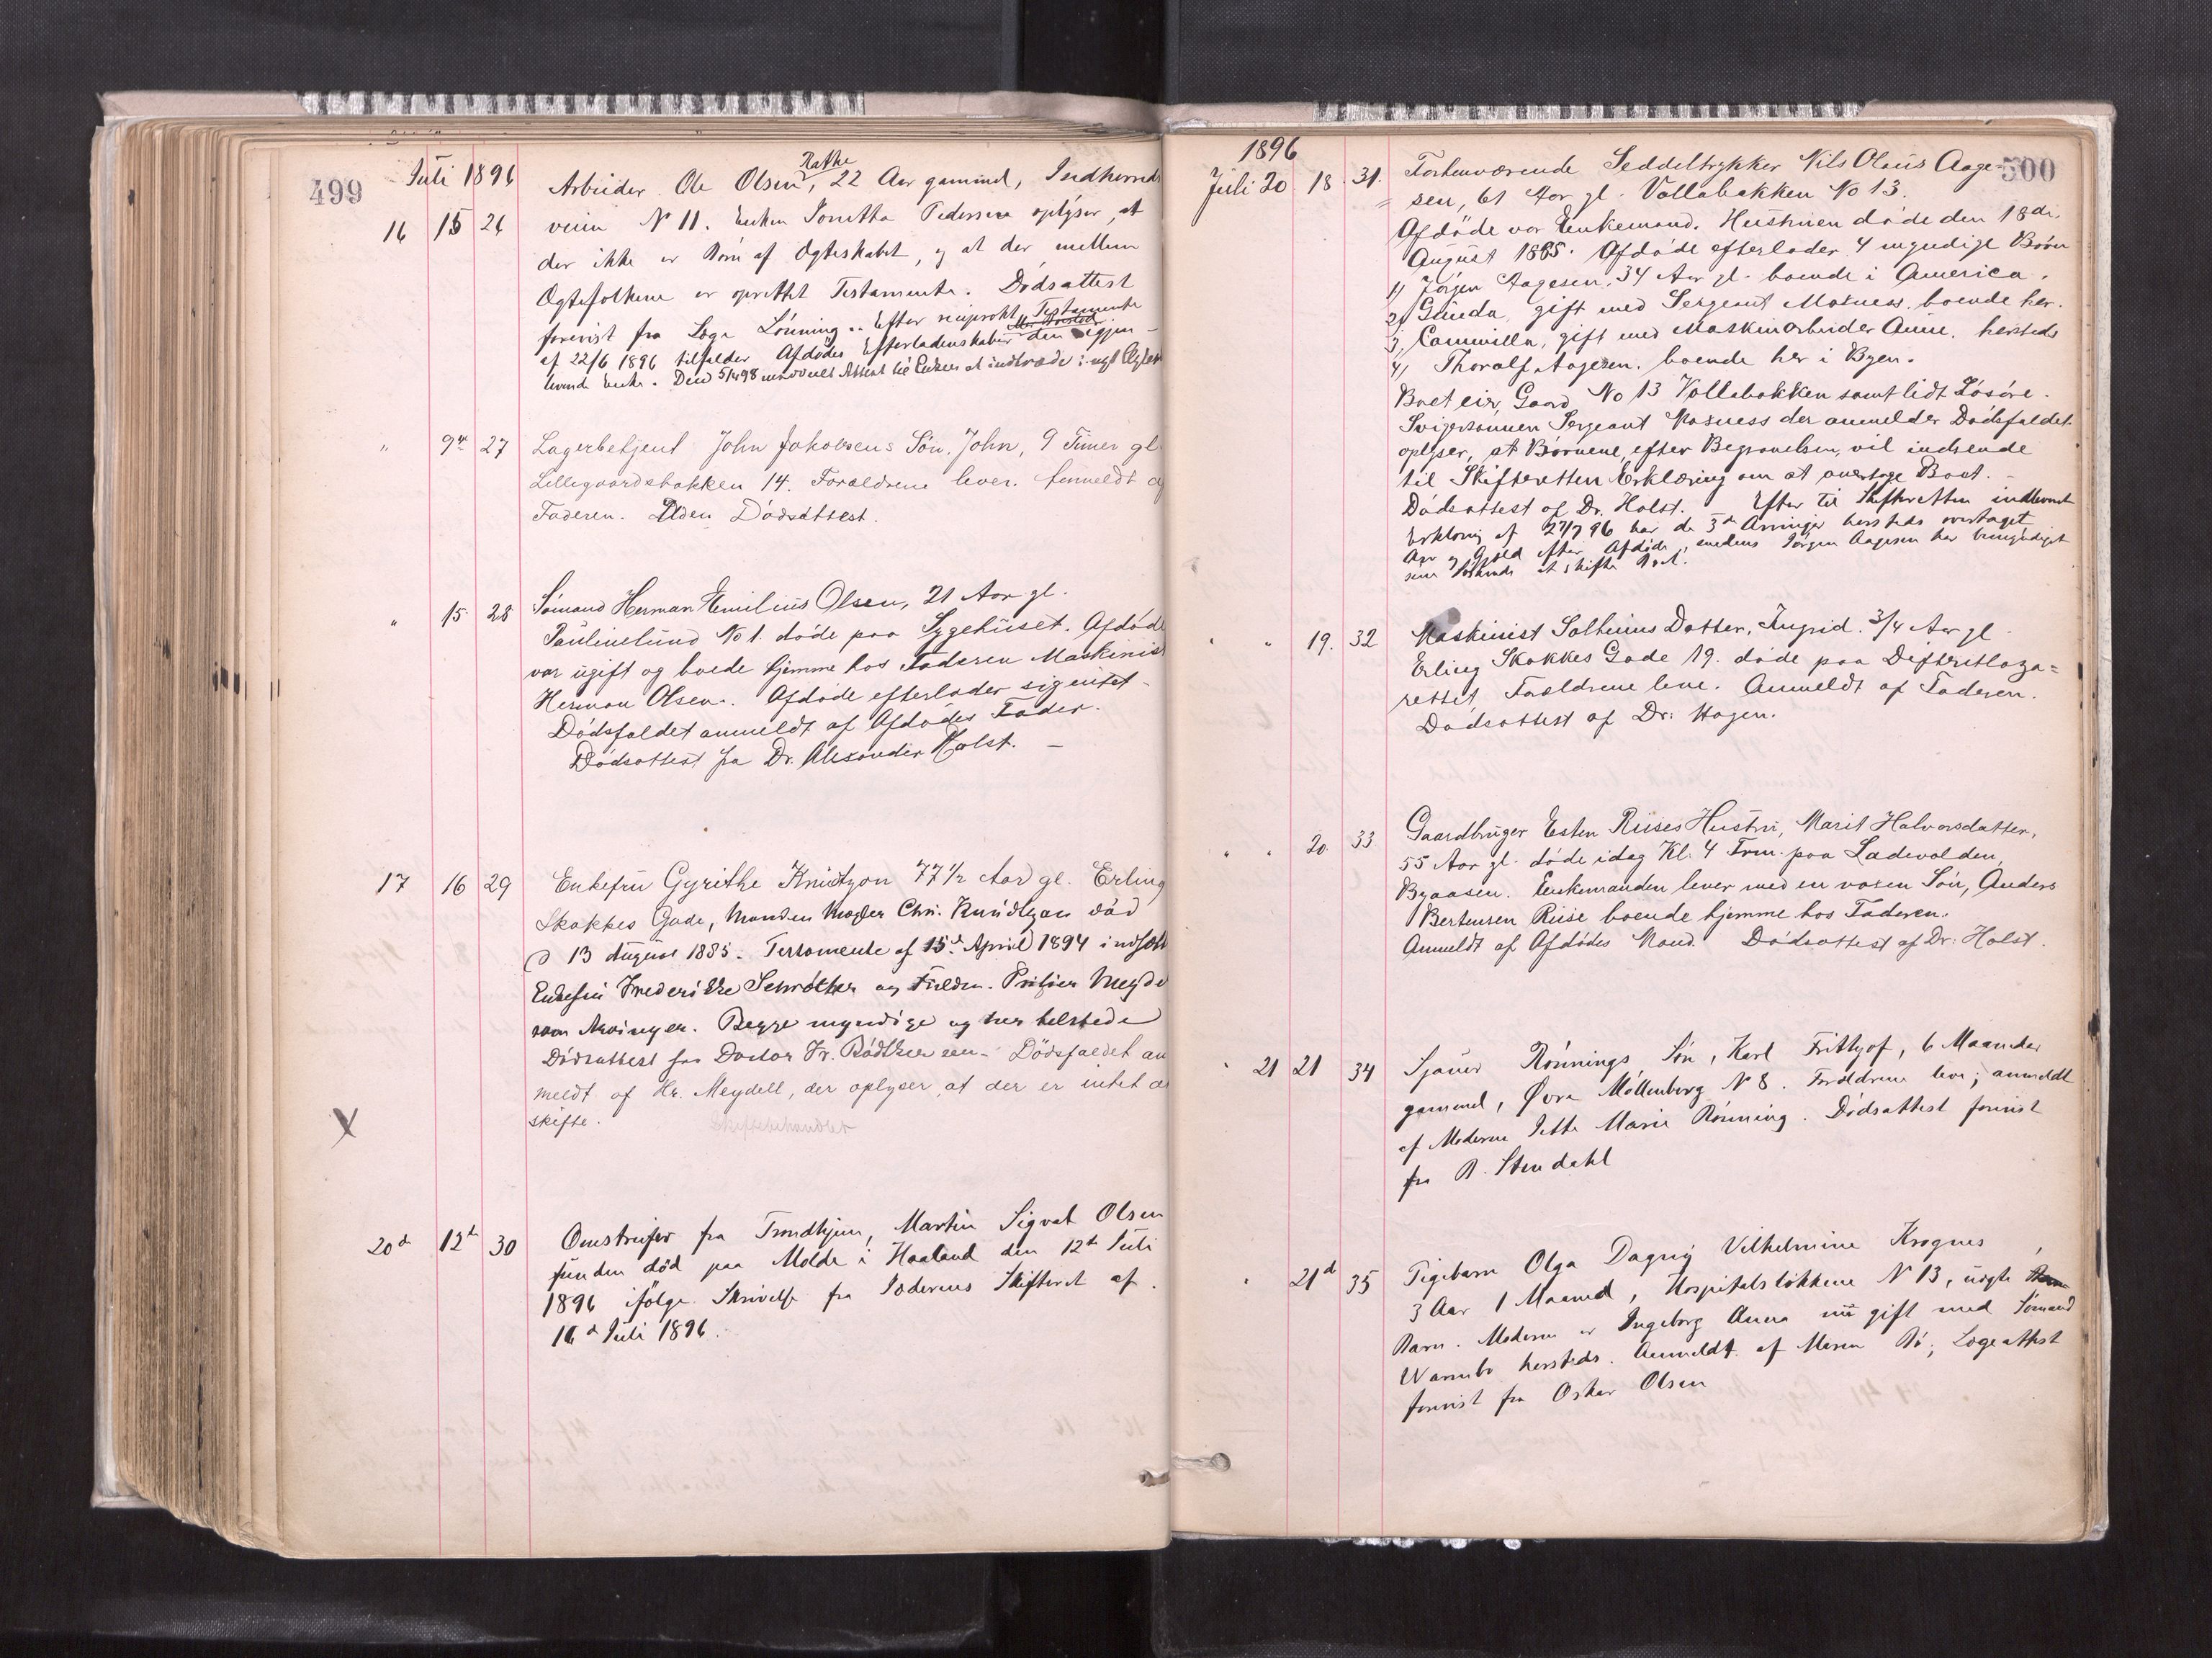 499
Juli 1896
Rathe
Arbeider Ole Olsen, 22 Aar gammel, Indherreds
16 15 26 veien N 11. Enken Jonetta Pedersen oplyser, at
der ikke er Børn af Ægteskabet, og at der mellem
Ægtefolkene er oprettet Testamente. Dødsattest
forevist fra Læge Lønning. Efter reciprokt Testamente
af 22/6 1896 tilfalder Afdødes Efterladenskaber den igjen-
levende Enke. Den 5/1 98 meddelt Attest til Enken at indtræde i nyt Ægtesk
" 9de 27 Lagerbetjent John Jakobsens Søn, John, 9 Timer gl.
Lillegaardsbakken 14. Forældrene lever. Anmeldt af
Faderen. Uden Dødsattest.
" 15 28 Sømand Herman Emilius Olsen, 21 Aar gl.
Paulinelund No 1. døde paa Sygehuset. Afdøde
var ugift og boede hjemme hos Faderen Maskinist
Herman Olsen. Afdøde efterlader sig intet -
Dødsfaldet anmeldt af Afdødes Fader.
Dødsattest fra Dr. Alexander Holst. -
17 16 29 Enkefru Gyrithe Knudtzon 77 1/2 Aar gl. Erling
Skakkes Gade, Manden Chr. Knudtzon død
d 13 August 1885. Testamente af 15de April 1894 indsætter
Enkefru Frederikke Schrøther og Meyde
som Arvinger. Begge myndige og her tilstede
Dødsattest fra Doctor Fr. Bødtker sen. Dødsfaldet an
meldt af Hr. Meydell, der oplyser, at der er intet at
skifte.
Skiftebehandlet
X
20de 12te 30 Omstreifer fra Trondhjem, Martin Sigvat Olsen
funden død paa Molde i Haaland den 12te Juli
1896 ifølge Skrivelse fra Jæderens Skifteret af
16de Juli 1896.
500
1896
Juli 20 18 31. Forhenværende Seddeltrykker Nils Olaus Aage=
sen, 61 Aar gl. Vollabakken No 13.
Afdøde var Enkemand. Hustruen døde den 18de
August 1885. Afdøde efterlader 4 myndige Børn
1) Jørgen Aagesen, 34 Aar gl. boende i America.
2) Gunda, gift med Sergeant Moxness, boende her.
3, Camilla, gift med Maskinarbeider Aune, hersteds
4) Thoralf Aagesen, boende her i Byen.
Boet eier Gaard No 13 Vollabakken samt lidt Løsøre.
Svigersønnen Sergeant Moxness der anmelder Dødsfaldet
oplyser, at Børnene, efter Begravelsen, vil indsende
til Skifteretten Erklæring om at overtage Boet. -
Dødsattest af Dr. Holst. Efter til Skifteretten indleveret
Erklæring af 27/7 96 har de 3de Arvinger hersteds overtaget
Arv og Gjæld efter Afdøde, medens Jørgen Aagesen har bemyndiget
sine Søskende at skifte Boet.
" " 19. 32 Maskinist Solheims Datter, Ingrid. 3/4 Aar gl
Erling Skakkes Gade 19. døde paa Difteritlaza=
rettet, Forældrene leve. Anmeldt af Faderen.
Dødsattest af Dr: Hagen.
" " 20. 33 Gaardbruger Esten Riises Hustru, Marit Halvorsdatter,
55 Aar gl. døde idag Kl. 4 Frm. paa Ladevolden,
Byaasen. Enkemanden lever med en voxen Søn, Anders
Bertensen Riise boende hjemme hos Faderen.
Anmeldt af Afdødes Mand. Dødsattest af Dr: Holst.
" 21 21 34 Sjouer Rønnings Søn, Karl Frithjof, 6 Maaneder
gammel, Øvre Møllenberg N 8. Forældrene leve; anmeldt
af Moderen Jette Marie Rønning. Dødsattest forevist
fra R. Stendahl
" 21d 35 Pigebarn Olga Dagny Vilhelmine Krognes,
3 Aar 1 Maaned, Hospitalsløkkene N 13, uægte
Barn. Moderen er Ingeborg Anna nu gift med Sømand
Warmbo hersteds. Anmeldt af Maren Bø; Lægeattest
forevist fra Oskar Olsen